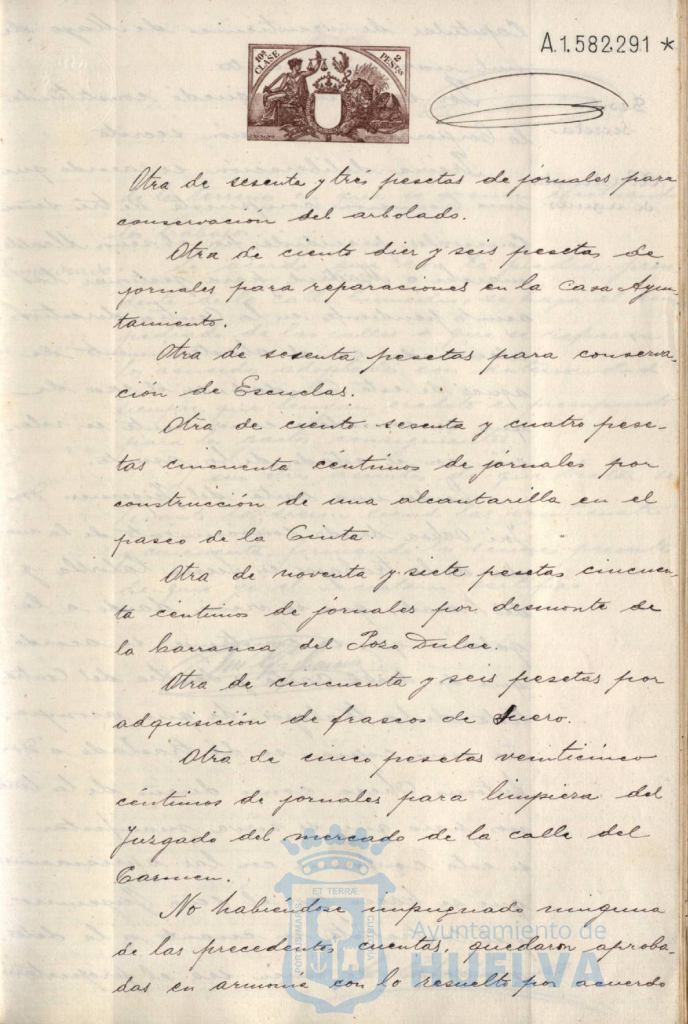 A.1.582.291 *
10ª CLASE
2 PESETAS
Otra de sesenta y tres pesetas de jornales para
conservación del arbolado.
Otra de ciento diez y seis pesetas de
jornales para reparaciones en la Casa Ayun-
tamiento.
Otra de sesenta pesetas para conserva-
ción de Escuelas.
Otra de ciento sesenta y cuatro pese-
tas cincuenta céntimos de jornales por
construcción de una alcantarilla en el
paseo de la Cinta.
Otra de noventa y siete pesetas cincuen-
ta céntimos de jornales por desmonte de
la barranca del Pozo Dulce.
Otra de cincuenta y seis pesetas por
adquisición de frascos de suero.
Otra de cinco pesetas veinticinco
céntimos de jornales para limpieza del
Juzgado del mercado de la calle del
Carmen.
No habiéndose impugnado ninguna
de las precedentes cuentas, quedaron aproba-
das en armonía con lo resuelto por acuerdo
ET TERRÆ
PORTUS MARIS
CUSTODIA
Ayuntamiento de
HUELVA